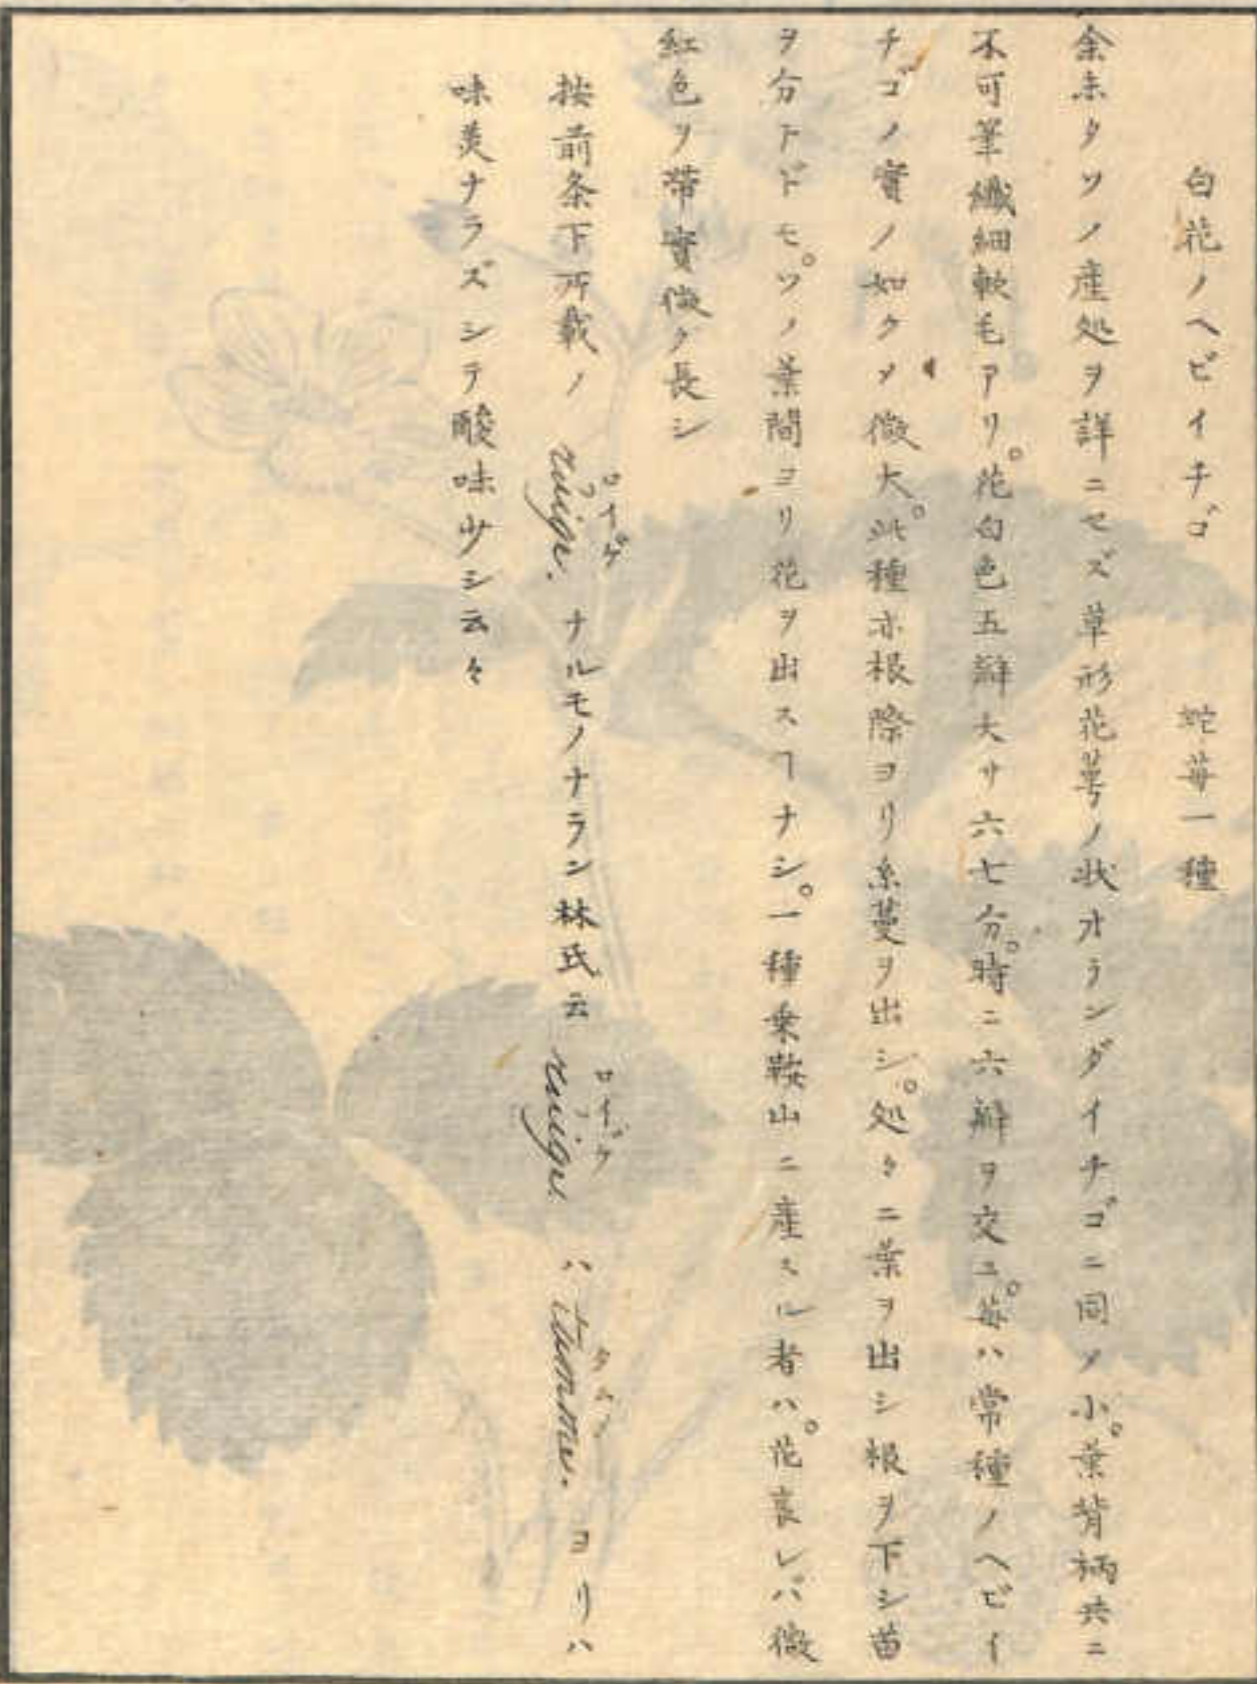 白花ノヘビイチゴ　蛇苺一種
余未タソノ産処ヲ詳ニセズ草形花萼ノ状オランダイチゴニ同メ小。葉背柄共ニ
不可筆繊細軟毛アリ。花白色五辨大サ六七分。時ニ六辨ヲ交ユ。苺ハ常種ノヘビイ
チゴノ實ノ如クメ微大。此種亦根際ヨリ糸蔓ヲ出シ。処々ニ葉ヲ出シ根ヲ下シ苗
ヲ分ツトドモ。ソノ葉間ヨリ花ヲ出スヿナシ。一種乗鞍山ニ産スル者ハ。花衰レバ微
紅色ヲ帯實微ク長シ
按前条下所載ノ ruige. ロイゲ ナルモノナラン林氏云 ruige. ロイゲ ハ tamme. タムメ ヨリハ
味美ナラズシテ酸味少シ云々